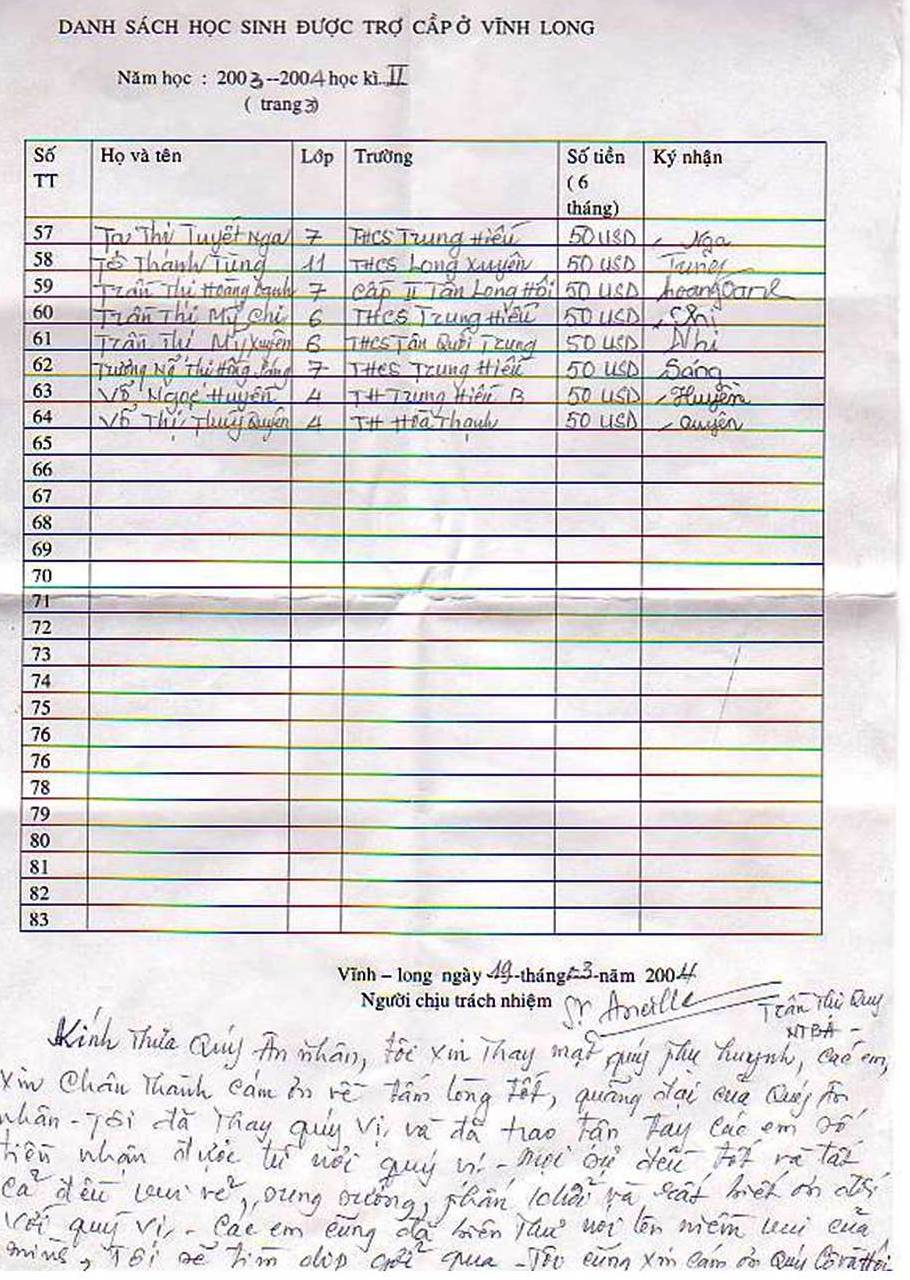 DANH SÁCH HỌC SINH ĐƯỢC TRỢ CẤP Ở VĨNH LONG
Năm học : 2003--2004 học kì II
( trang 3)
Số TT Họ và tên Lớp Trường Số tiền (6 tháng) Ký nhận
57 Tạ Thị Tuyết Nga 7 THCS Trung Hiếu 50 USD Nga
58 Tô Thanh Tùng 11 THCS Long Xuyên 50 USD Tùng
59 Trần Thị Hoàng Oanh 7 Cấp II Tân Long Hội 50 USD hoang Oanh
60 Trần Thị Mỹ Chi 6 THCS Trung Hiếu 50 USD Chi
61 Trần Thị Mỹ Xuyên 6 THCS Tân Quới Trung 50 USD Nhi
62 Trương Thị Hồng 7 THCS Trung Hiếu 50 USD Sáng
63 Võ Ngọc Huyền 4 TH Trung Hiếu B 50 USD Huyền
64 Võ Thị Thuý Quyên 4 TH Hoà Thạnh 50 USD Quyên
65
66
67
68
69
70
71
72
73
74
75
76
76
78
79
80
81
82
83
Vĩnh – long ngày 19-tháng-3-năm 2004
Người chịu trách nhiệm Sr Trần Thị Quy
Kính Thưa Quý Ân nhân, tôi xin Thay mặt quý phụ huynh, các em,
xin Chân Thành cám ơn về tấm lòng tốt, quãng đại của Quý Ân
nhân - Tôi đã Thay quý vị, và đã trao tận tay các em số
tiền nhận được từ nơi quý vị - Mọi sự đều tốt và tất
cả đều vui vẻ, sung sướng, phấn khởi và rất biết ơn đối
với quý vị, - Các em cũng đã biên Thư nói lên niềm vui của
mình, Tôi sẽ tìm dịp gởi qua - Tôi cũng xin cám ơn Quý Cô và Hội